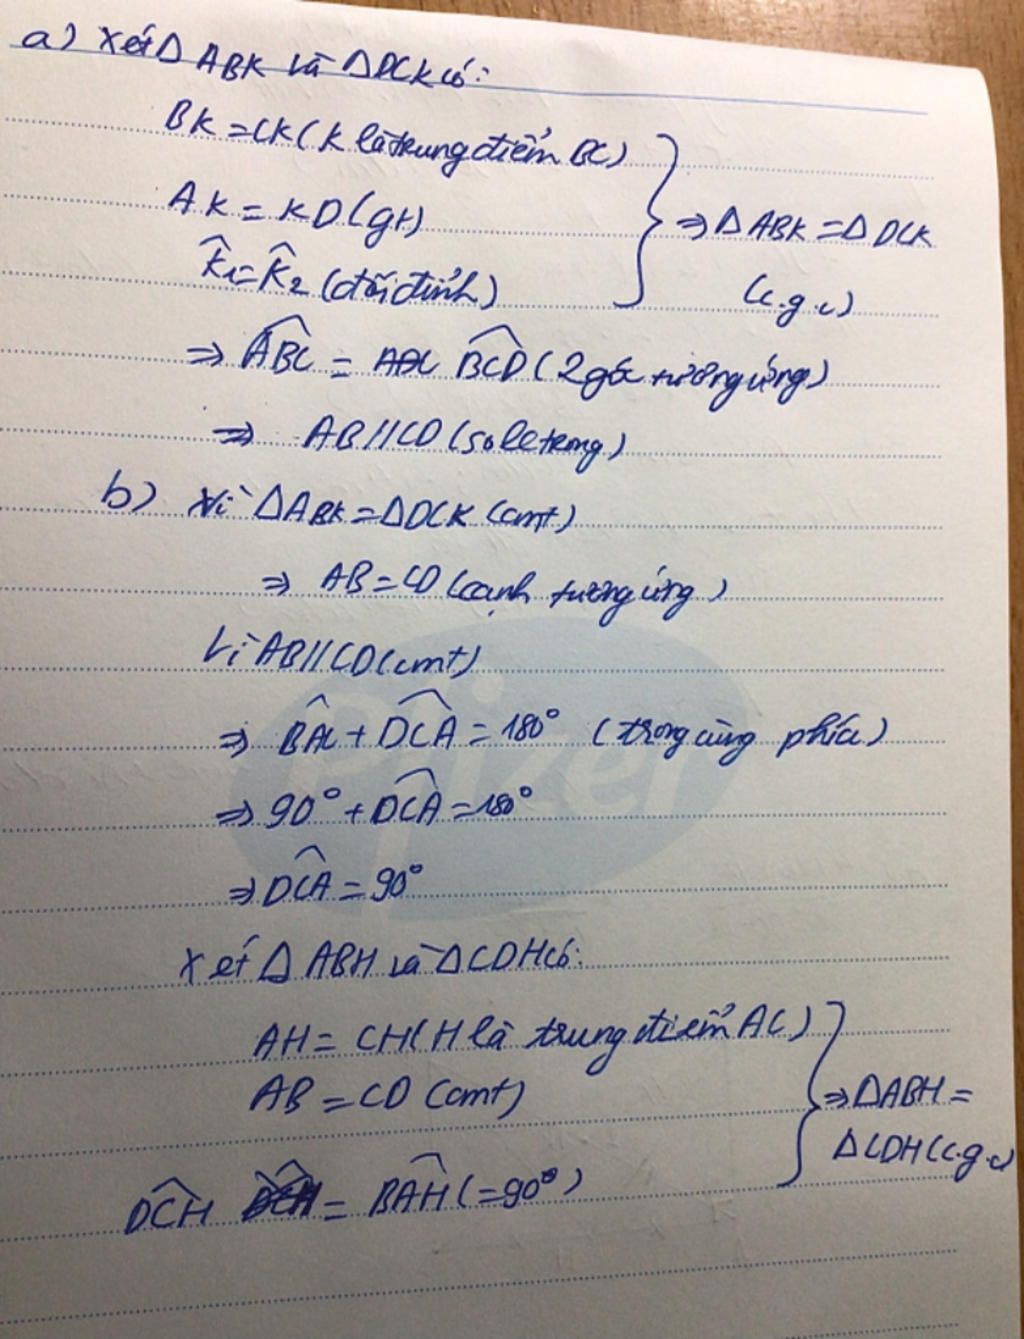 a) Xét Δ ABK và Δ DCK có:
BK = CK (K là trung điểm BC)
AK = KD (gt)
⇒ Δ ABK = Δ DCK
K̂₁ = K̂₂ (đối đỉnh)
(c.g.c)
⇒ ABC = ADC BCD (2 góc tương ứng)
⇒ AB // CD (so le trong)
b) Vì Δ ABK = Δ DCK (cmt)
⇒ AB = CD (cạnh tương ứng)
Vì AB // CD (cmt)
Pfizer
⇒ BAC + DCA = 180° (trong cùng phía)
⇒ 90° + DCA = 180°
⇒ DCA = 90°
Xét Δ ABH và Δ CDH có:
AH = CH (H là trung điểm AC)
AB = CD (cmt)
⇒ Δ ABH =
Δ CDH (c.g.c)
DCH DCH = BAH (= 90°)